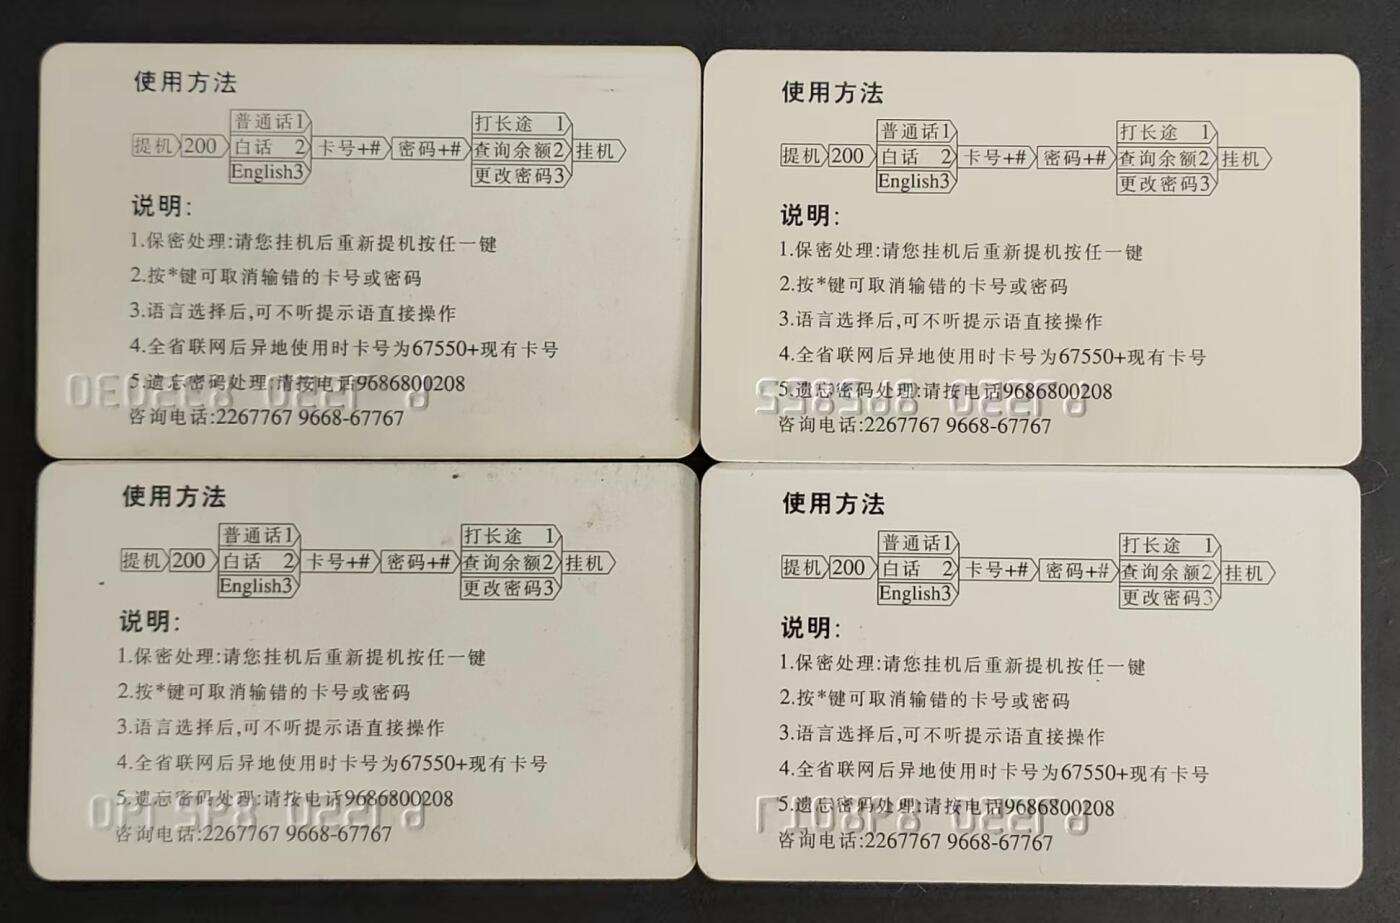 使用方法
提机 200 普通话1 白话 2 English3 卡号+# 密码+# 打长途 1 查询余额2 更改密码3 挂机
说明:
1.保密处理:请您挂机后重新提机按任一键
2.按*键可取消输错的卡号或密码
3.语言选择后,可不听提示语直接操作
4.全省联网后异地使用时卡号为67550+现有卡号
5.遗忘密码处理:请按电话9686800208
咨询电话:2267767 9668-67767
使用方法
提机 200 普通话1 白话 2 English3 卡号+# 密码+# 打长途 1 查询余额2 更改密码3 挂机
说明:
1.保密处理:请您挂机后重新提机按任一键
2.按*键可取消输错的卡号或密码
3.语言选择后,可不听提示语直接操作
4.全省联网后异地使用时卡号为67550+现有卡号
5.遗忘密码处理:请按电话9686800208
咨询电话:2267767 9668-67767
使用方法
提机 200 普通话1 白话 2 English3 卡号+# 密码+# 打长途 1 查询余额2 更改密码3 挂机
说明:
1.保密处理:请您挂机后重新提机按任一键
2.按*键可取消输错的卡号或密码
3.语言选择后,可不听提示语直接操作
4.全省联网后异地使用时卡号为67550+现有卡号
5.遗忘密码处理:请按电话9686800208
咨询电话:2267767 9668-67767
使用方法
提机 200 普通话1 白话 2 English3 卡号+# 密码+# 打长途 1 查询余额2 更改密码3 挂机
说明:
1.保密处理:请您挂机后重新提机按任一键
2.按*键可取消输错的卡号或密码
3.语言选择后,可不听提示语直接操作
4.全省联网后异地使用时卡号为67550+现有卡号
5.遗忘密码处理:请按电话9686800208
咨询电话:2267767 9668-67767